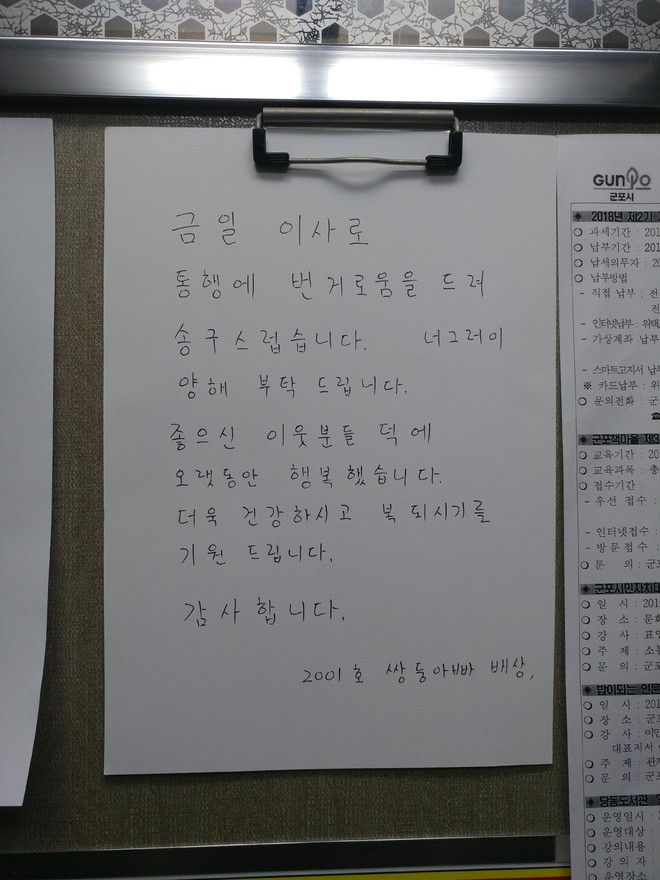 금일 이사로
통행에 번거로움을 드려
송구스럽습니다. 너그러이
양해 부탁 드립니다.
좋으신 이웃분들 덕에
오랫동안 행복했습니다.
더욱 건강하시고 복 되시기를
기원 드립니다.
감사합니다.
2001호 쌍둥아빠 배상,
GUNPO
군포시
◈ 2018년 제2기
○ 과세기간 : 201
○ 납부기간 : 201
○ 납세의무자 : 20
○ 납부방법
- 직접 납부 : 전
전
- 인터넷납부 : 위택
- 가상계좌 납부
- 스마트고지서 납부
※ 카드납부 : 위
○ 문의전화 : 군
☎
◈ 군포책마을 제3
○ 교육기간 : 20
○ 교육과목 : 총
○ 접수기간
- 우선 접수 :
- 인터넷접수 :
- 방문접수 :
○ 문 의 : 군포
◈ 군포시민자치대
○ 일 시 : 201
○ 장 소 : 문화
○ 강 사 : 표
○ 주 제 : 소통
○ 문 의 : 군포
◈ 밥이되는 인문
○ 일 시 : 201
○ 장 소 : 군포
○ 강 사 : 이
대표저서
○ 주 제 : 관
○ 문 의 : 군포
◈ 당동도서관
○ 운영일시 : 2
○ 운영대상 :
○ 강의내용 :
○ 강 의 자 :
○ 운영장소 :